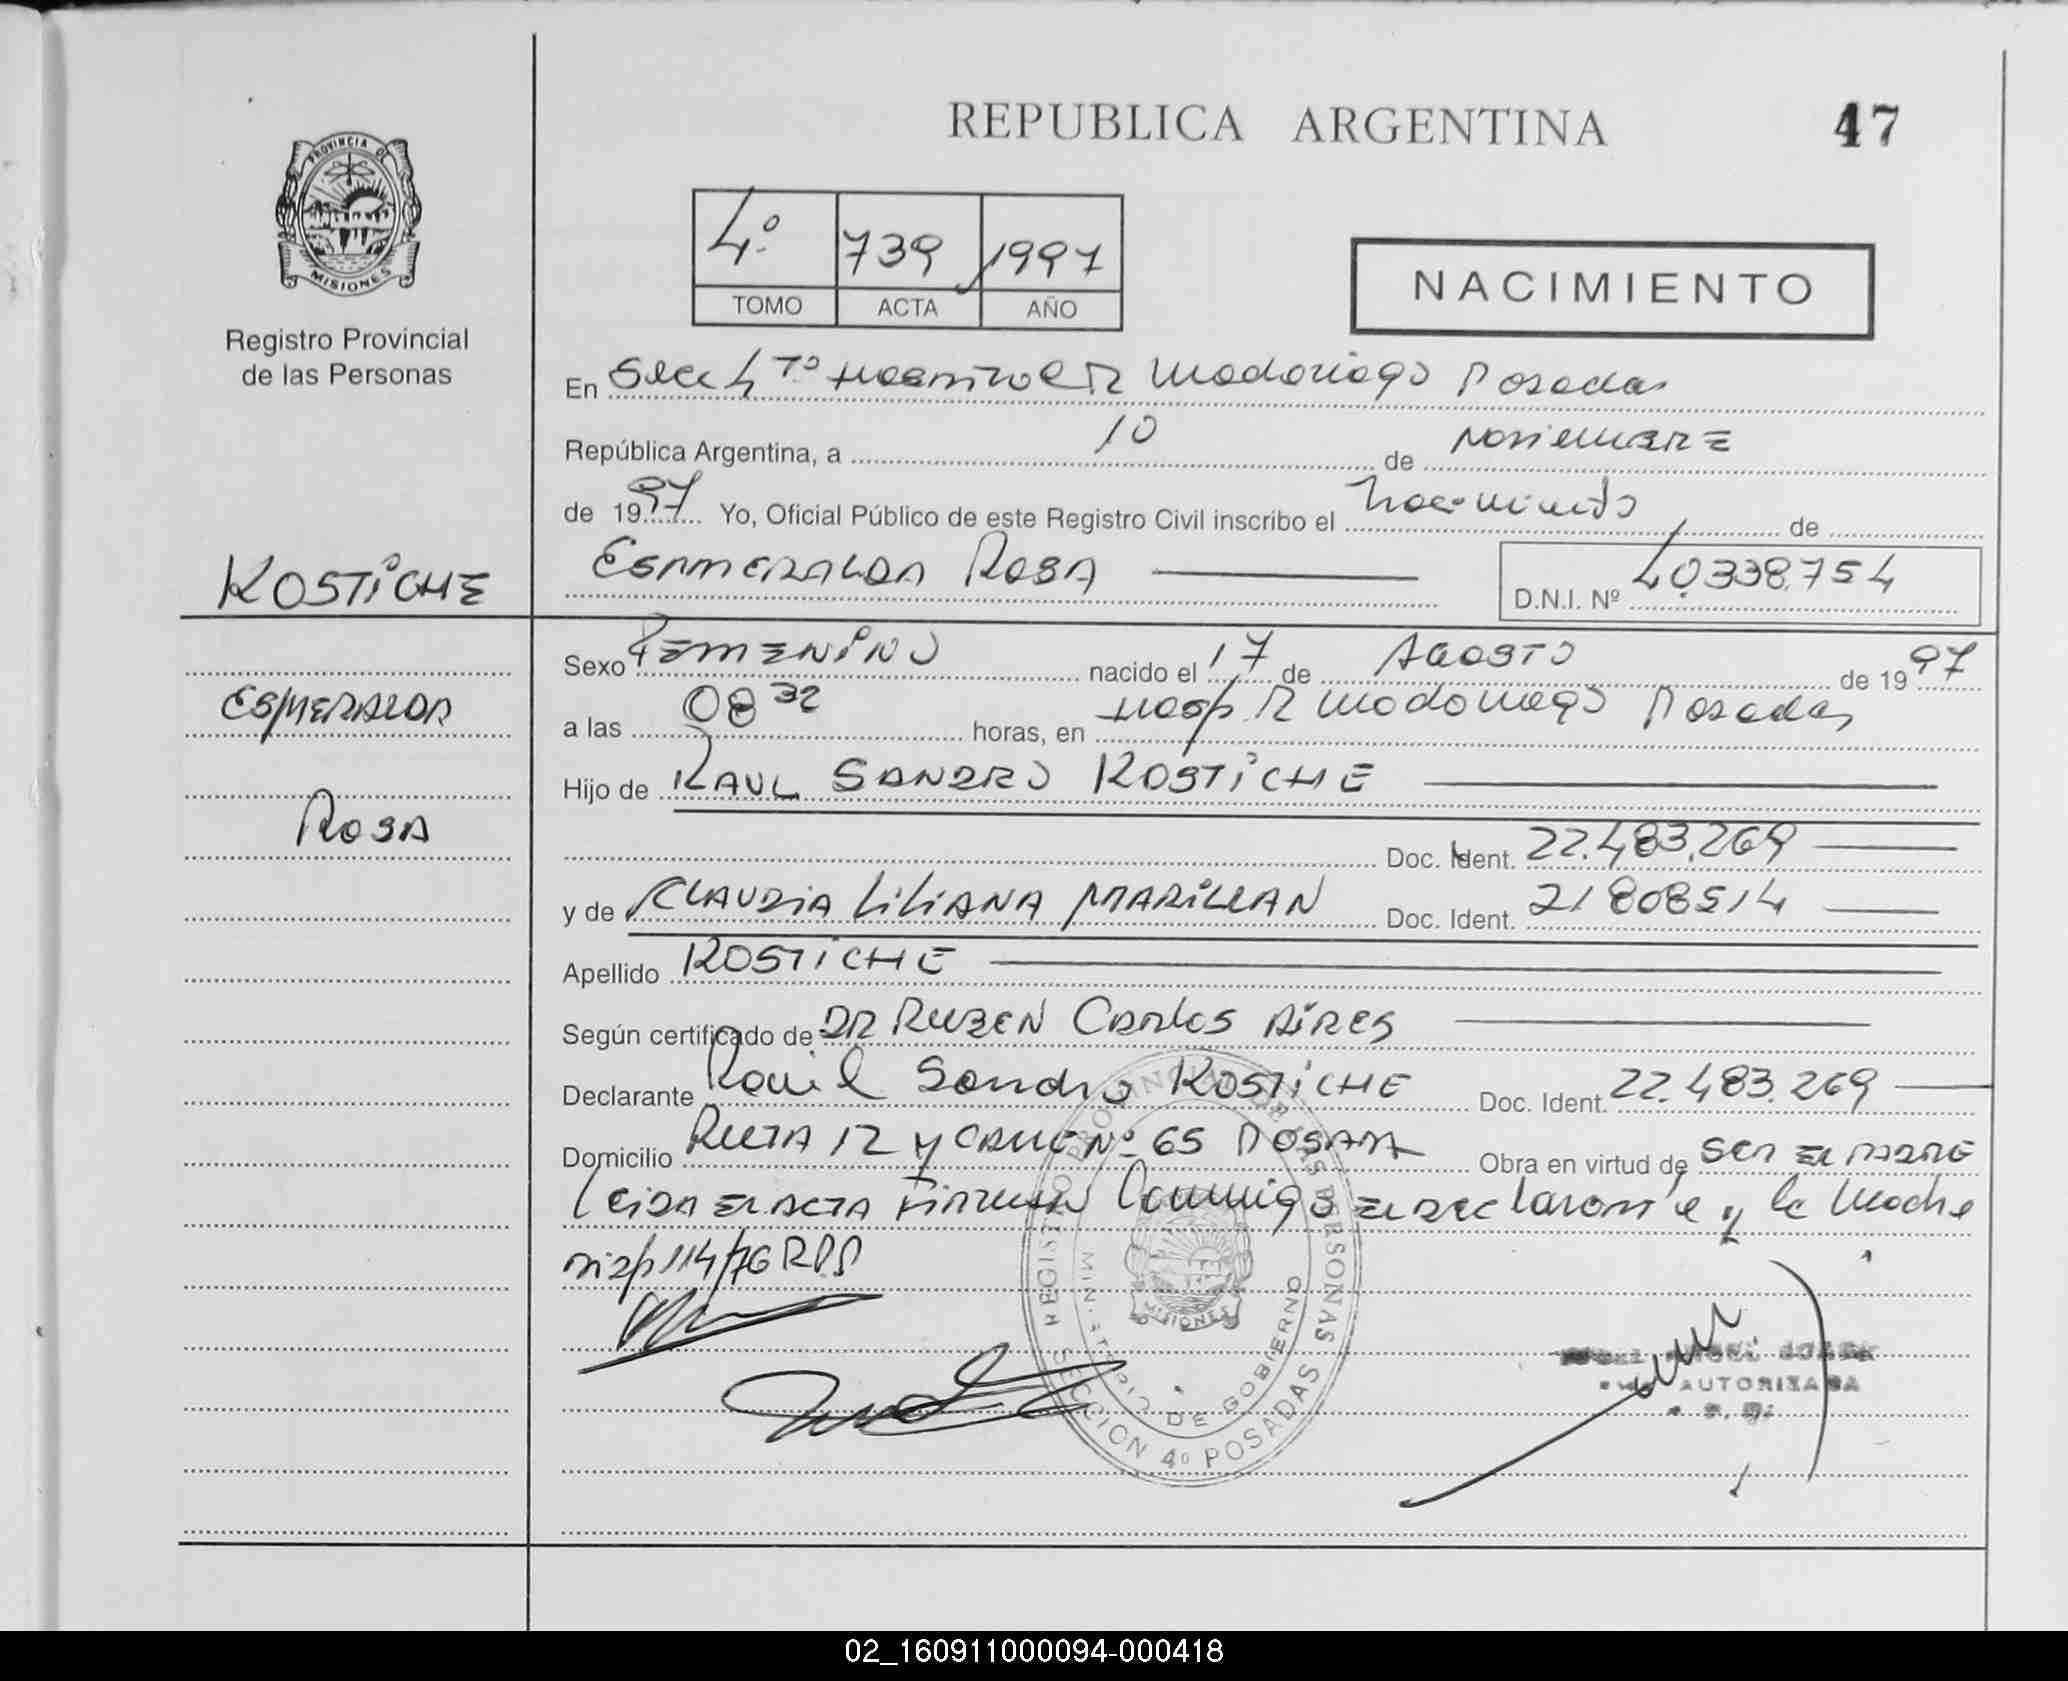 REPUBLICA ARGENTINA
47
PROVINCIA DE
MISIONES
Registro Provincial
de las Personas
4º 739 1997
TOMO ACTA AÑO
NACIMIENTO
En Secc 4ta Hospital R Madariaga Posadas
República Argentina, a 10 de Noviembre
de 1997 Yo, Oficial Público de este Registro Civil inscribo el nacimiento de
KOSTICHE
ESMERALDA ROSA
D.N.I. Nº 40.338.754
Sexo FEMENINO nacido el 17 de AGOSTO de 1997
ESMERALDA
a las 08 32 horas, en Hosp R Madariaga Posadas
Hijo de RAUL SANDRO KOSTICHE
ROSA
Doc. Ident. 22.483.269
y de CLAUDIA LILIANA MARILLAN Doc. Ident. 21808514
Apellido KOSTICHE
Según certificado de DR RUBEN CARLOS AIRES
Declarante Raul Sandro KOSTICHE Doc. Ident. 22.483.269
Domicilio RUTA 12 y CALLE Nº 65 POSADA Obra en virtud de SER EL PADRE
LEIDA EL ACTA FIRMAN Conmigo EL DECLARANTE y la Madre
Disp 114/76 RPP
REGISTRO PROVINCIAL DE LAS PERSONAS
MINISTERIO DE GOBIERNO
MISIONES
SECCION 4º POSADAS
ANGEL
AUTORIZADA
02_160911000094-000418